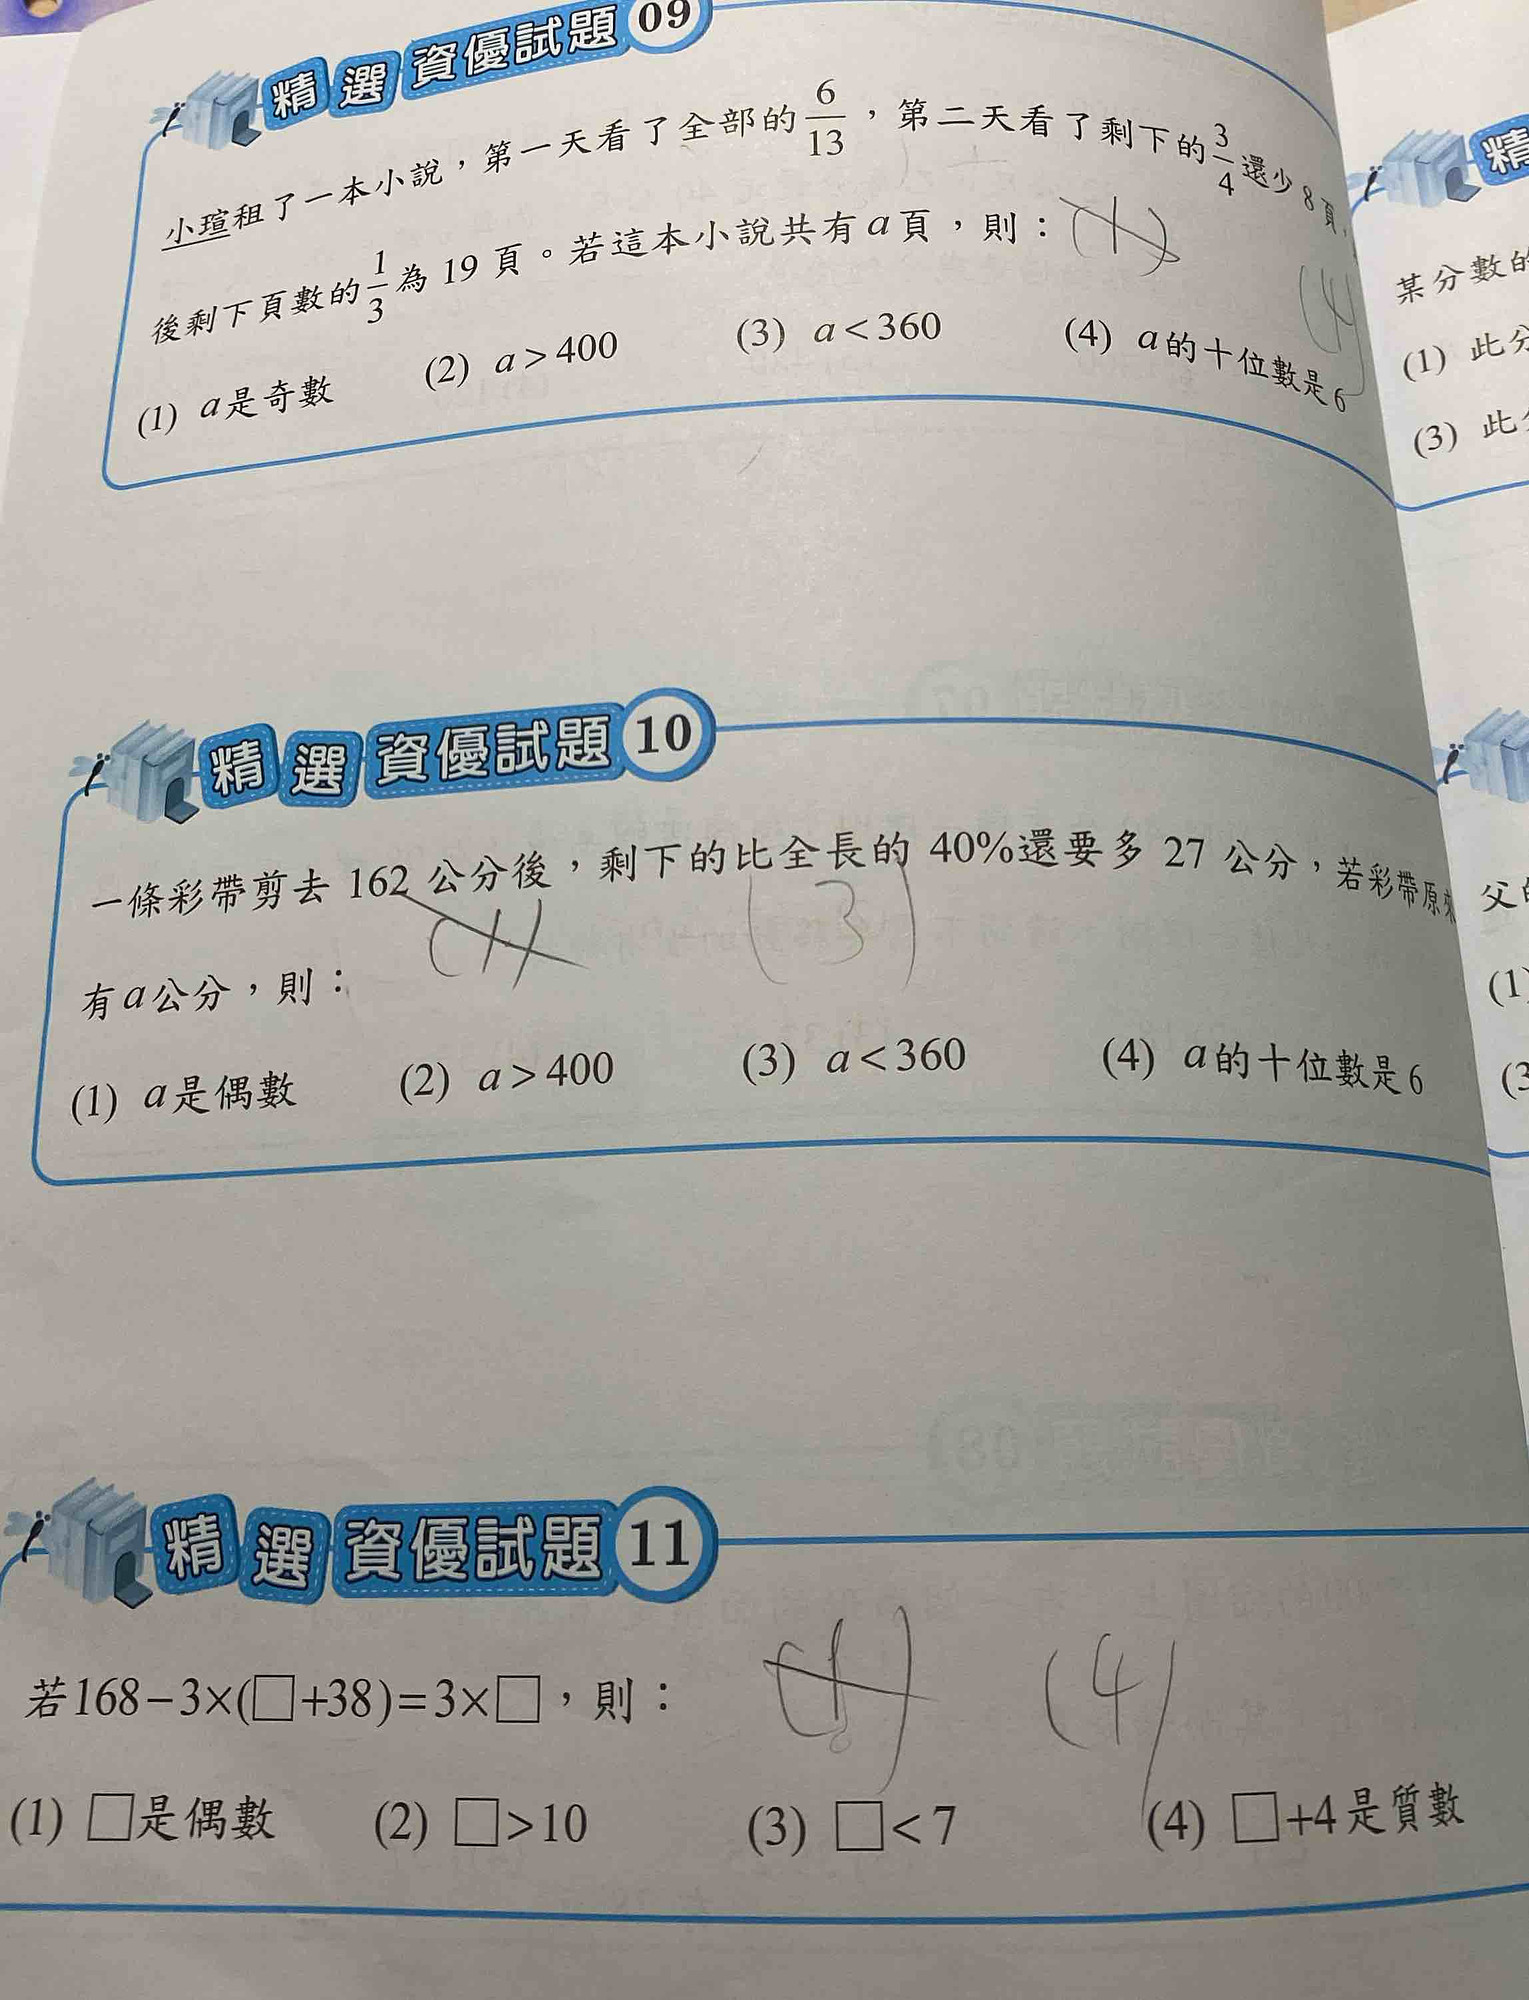 精選資優試題 09
小瑄租了一本小說，第一天看了全部的6/13，第二天看了剩下的3/4還少8頁，
後剩下頁數的1/3為19頁。若這本小說共有a頁，則：(1)
(4)
(1) a是奇數 (2) a>400 (3) a<360 (4) a的十位數是6
精選資優試題 10
一條彩帶剪去 162 公分後，剩下的比全長的 40%還要多 27 公分，若彩帶原來
有a公分，則：
(1) (3)
(1) a是偶數 (2) a>400 (3) a<360 (4) a的十位數是6
精選資優試題 11
若168－3×(□+38)=3×□，則：
(1) (4)
(1) □是偶數 (2) □>10 (3) □<7 (4) □+4是質數
精
某分數的
(1) 此分
(3) 此分
父
(1)
(3